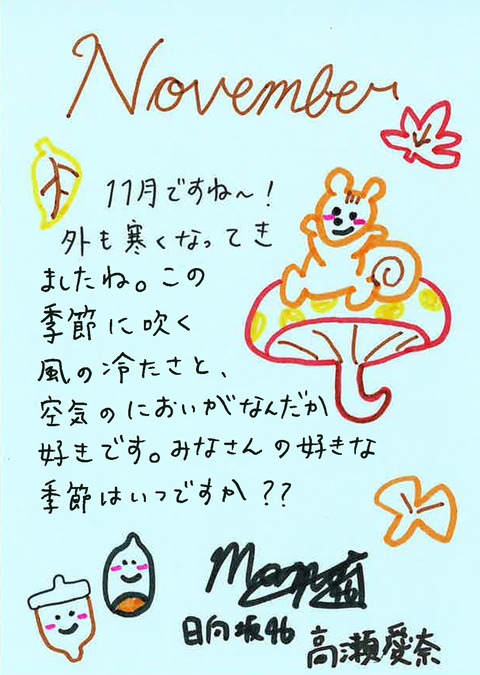 November
11月ですね〜！
外も寒くなってき
ましたね。この
季節に吹く
風の冷たさと、
空気のにおいがなんだか
好きです。みなさんの好きな
季節はいつですか??
日向坂46
高瀬愛奈